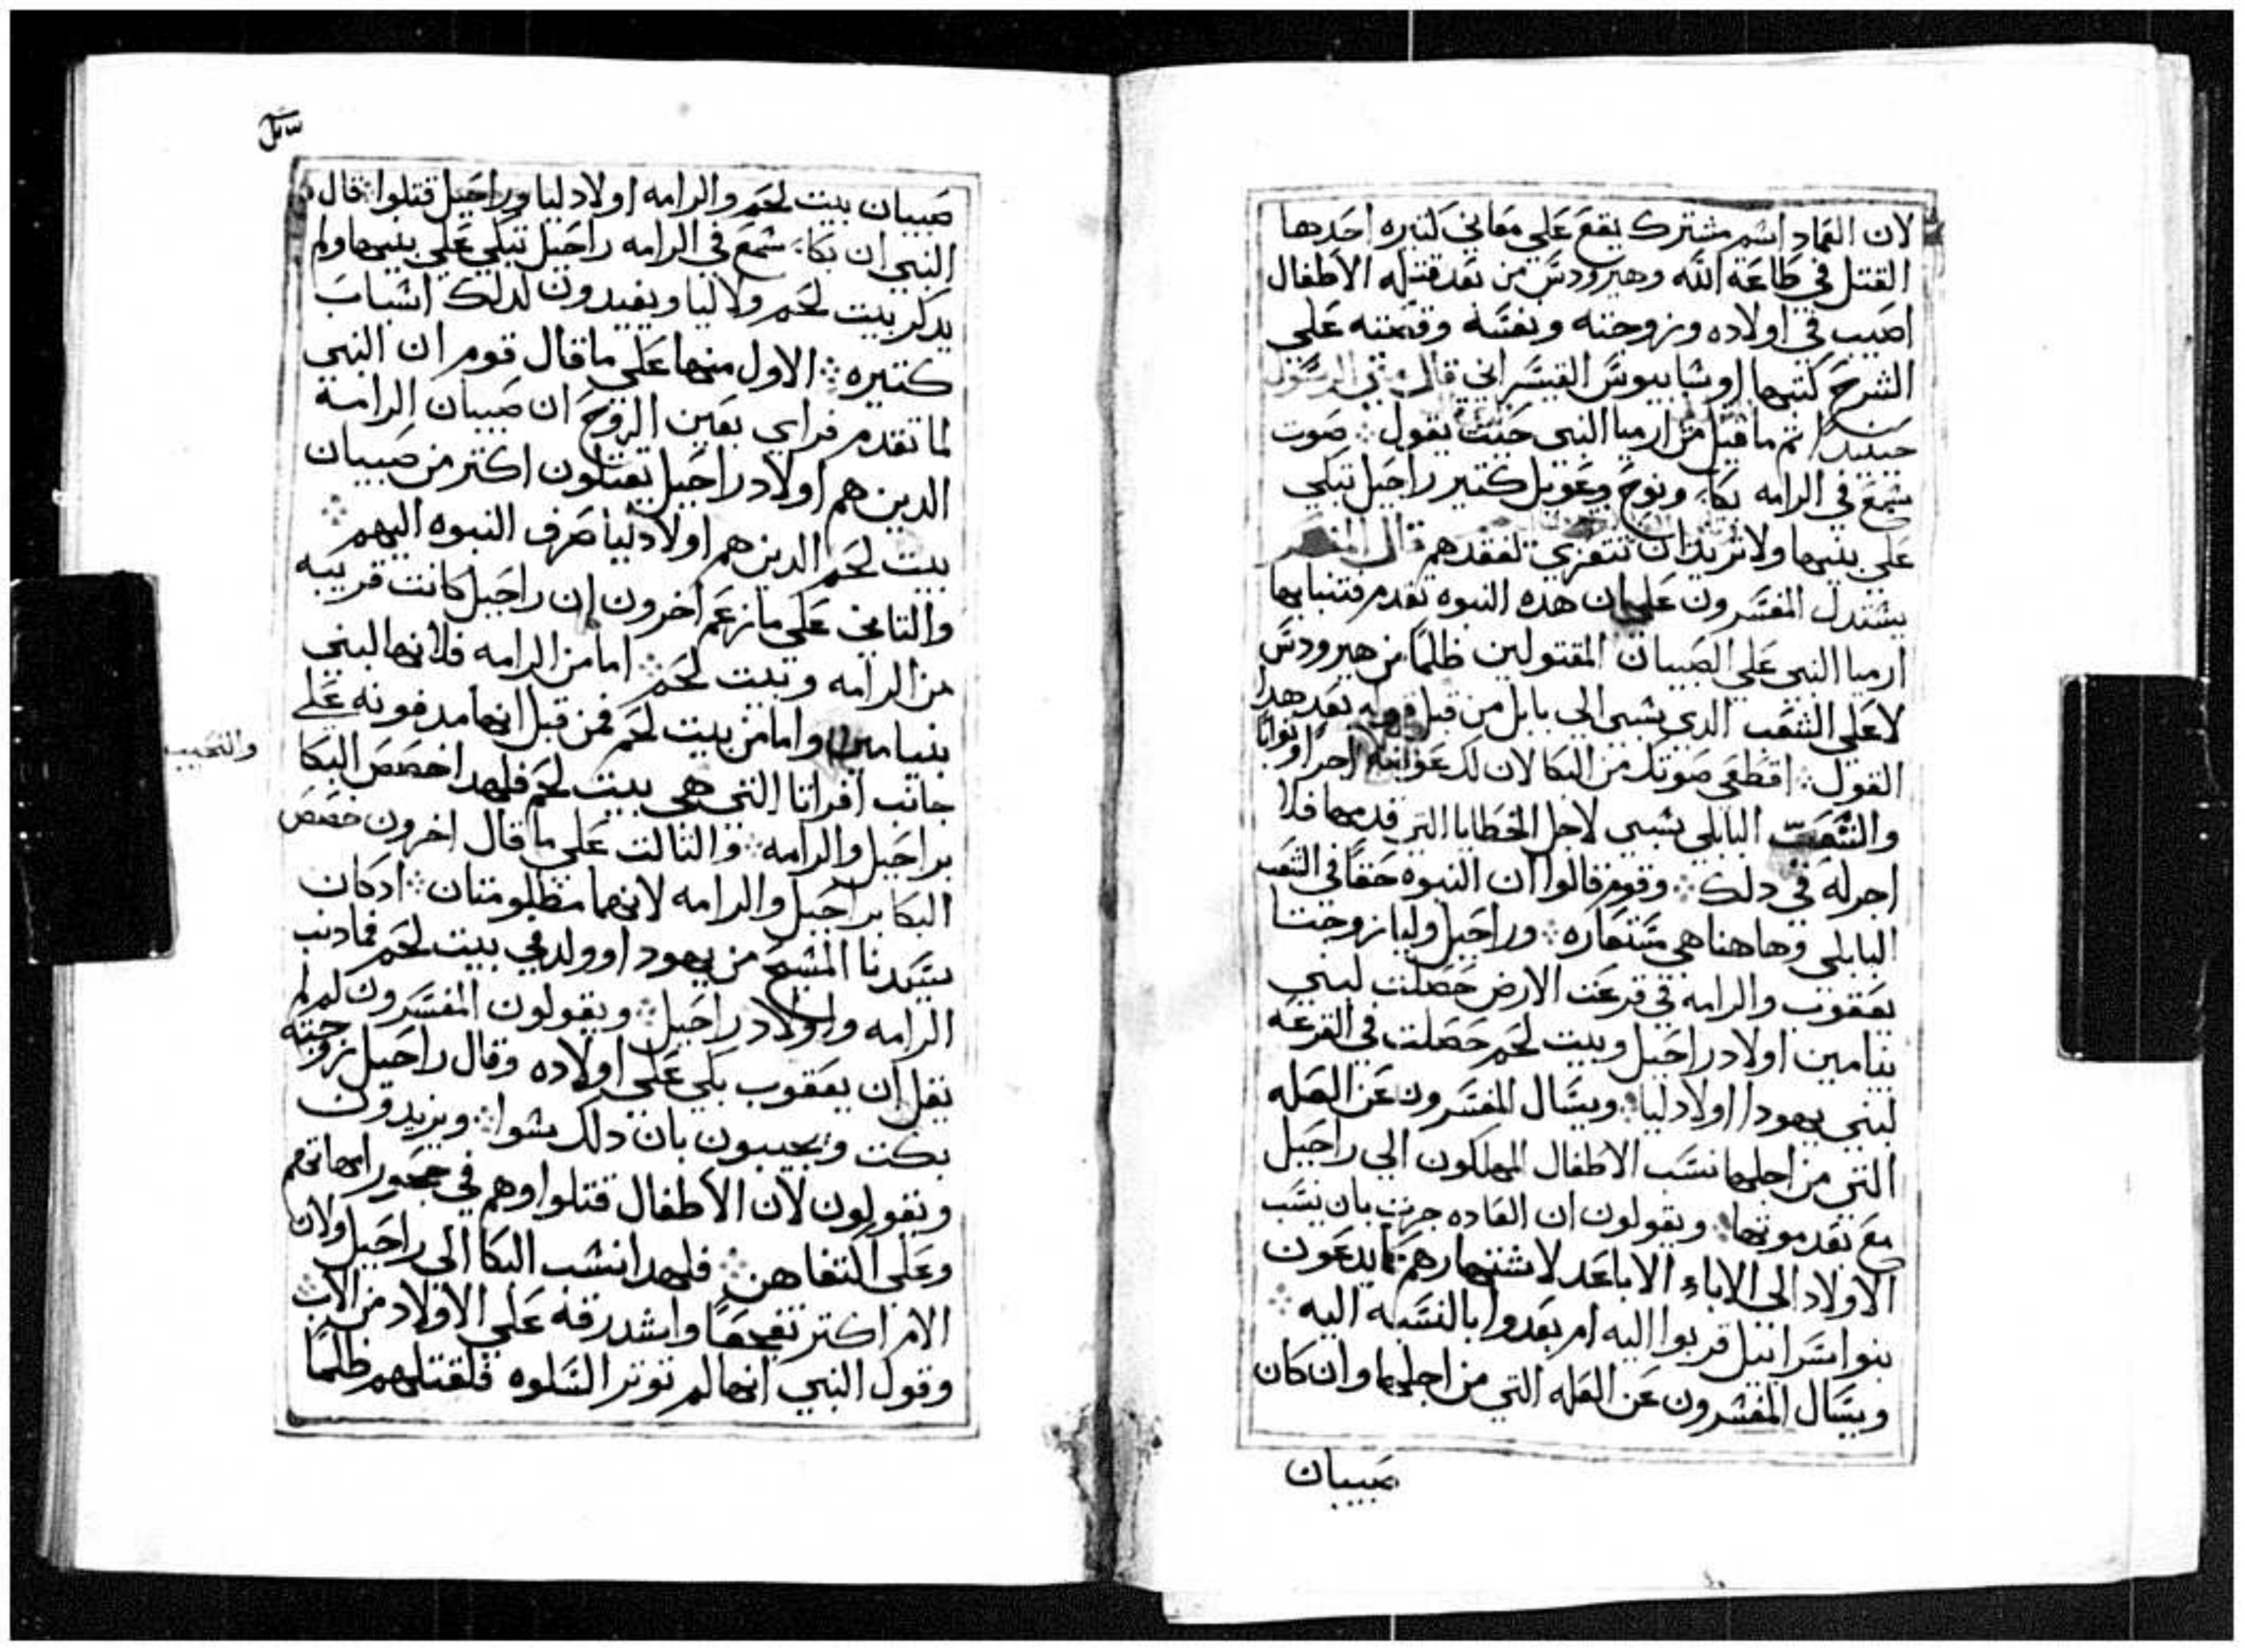 لان العماد اسم مشترك يقع علي معاني كثيره احدها
القتل في طاعة الله وهيرودس من بعد قتله الأطفال
اصيب في اولاده وزوجته ونفسه وقصته علي
الشرح كتبها اوسابيوس القيسراني قال متى الرسول
حينيد تم ما قيل من ارميا النبي حيث يقول ⁘ صوت
سمع في الرامه بكاء ونوح وعويل كتير راحيل تبكي
علي بنيها ولا تريد ان تتعزي لفقدهم قال المفسر
يستدل المفسرون علي ان هده النبوه تقدم فتنبا بها
ارميا النبي علي الصبيان المقتولين ظلمًا من هيرودس
لا علي الشعب الدي يسبى الي بابل من قبل قوله بعد هدا
القول ⁘ اقطعي صوتك من البكا لان لدعوانك اجرًا وثوابًا
والشعب البابلي يسبى لاجل الخطايا التي قدمها فلا
اجر له في دلك ⁘ وقوم قالوا ان النبوه حقًا في الشعب
البابلي وها هنا هي مستعاره ⁘ وراحيل وليا زوجتا
يعقوب والرامه في قرعت الارض حصلت لبني
بنيامين اولاد راحيل وبيت لحم حصلت في القرعه
لبني يهودا اولاد ليا ⁘ ويسال المفسرون عن العله
التي من اجلها نسب الاطفال المهلكون الي راحيل
مع تقدم موتها ⁘ ويقولون ان العاده جرت بان ينسب
الاولاد الي الاباء الاباعد لاشتهارهم كما يدعون
بنوا اسراييل قربوا اليه ام بعدوا بالنسبه اليه ⁘
ويسال المفسرون عن العله التي من اجلها وان كان
صبيان
صبيان بيت لحم والرامه اولاد ليا وراحيل قتلوا ⁘ قال
النبي ان بكاء سمع في الرامه راحيل تبكي علي بنيها ولم
يدكر بيت لحم ولا ليا ويفيدون لدلك اسباب
كتيره ⁘ الاول منها علي ما قال قوم ان النبي
لما تقدم فراي بعين الروح ان صبيان الرامة
الدين هم اولاد راحيل يقتلون اكتر من صبيان
بيت لحم الدين هم اولاد ليا صرف النبوه اليهم ⁘
والتاني علي ما زعم اخرون ان راحيل كانت قريبه
من الرامه وبيت لحم ⁘ اما من الرامه فلانها لبني
بنيامين واما من بيت لحم فمن قبل انها مدفونه علي
جانب افراتا التي هي بيت لحم فلهدا خصص البكا
والنحيب
براحيل والرامه ⁘ والتالت علي ما قال اخرون خصص
البكا براحيل والرامه لانهما مظلومتان ⁘ اد كان
سيدنا المسيح من يهودا وولد في بيت لحم فما دنب
الرامه واولاد راحيل ⁘ ويقولون المفسرون لم لم
يقل ان يعقوب بكي علي اولاده وقال راحيل زوجته
بكت ويجيبون بان دلك سوا ⁘ ويزيدون
ويقولون لان الأطفال قتلوا وهم في حجور امهاتهم
وعلي اكتفاهن ⁘ فلهدا نسب البكا الي راحيل ولان
الام اكتر تفجعًا واشد رقه علي الاولاد من الاب ⁘
وقول النبي انها لم توتر السلوه فلقتلهم ظلمًا